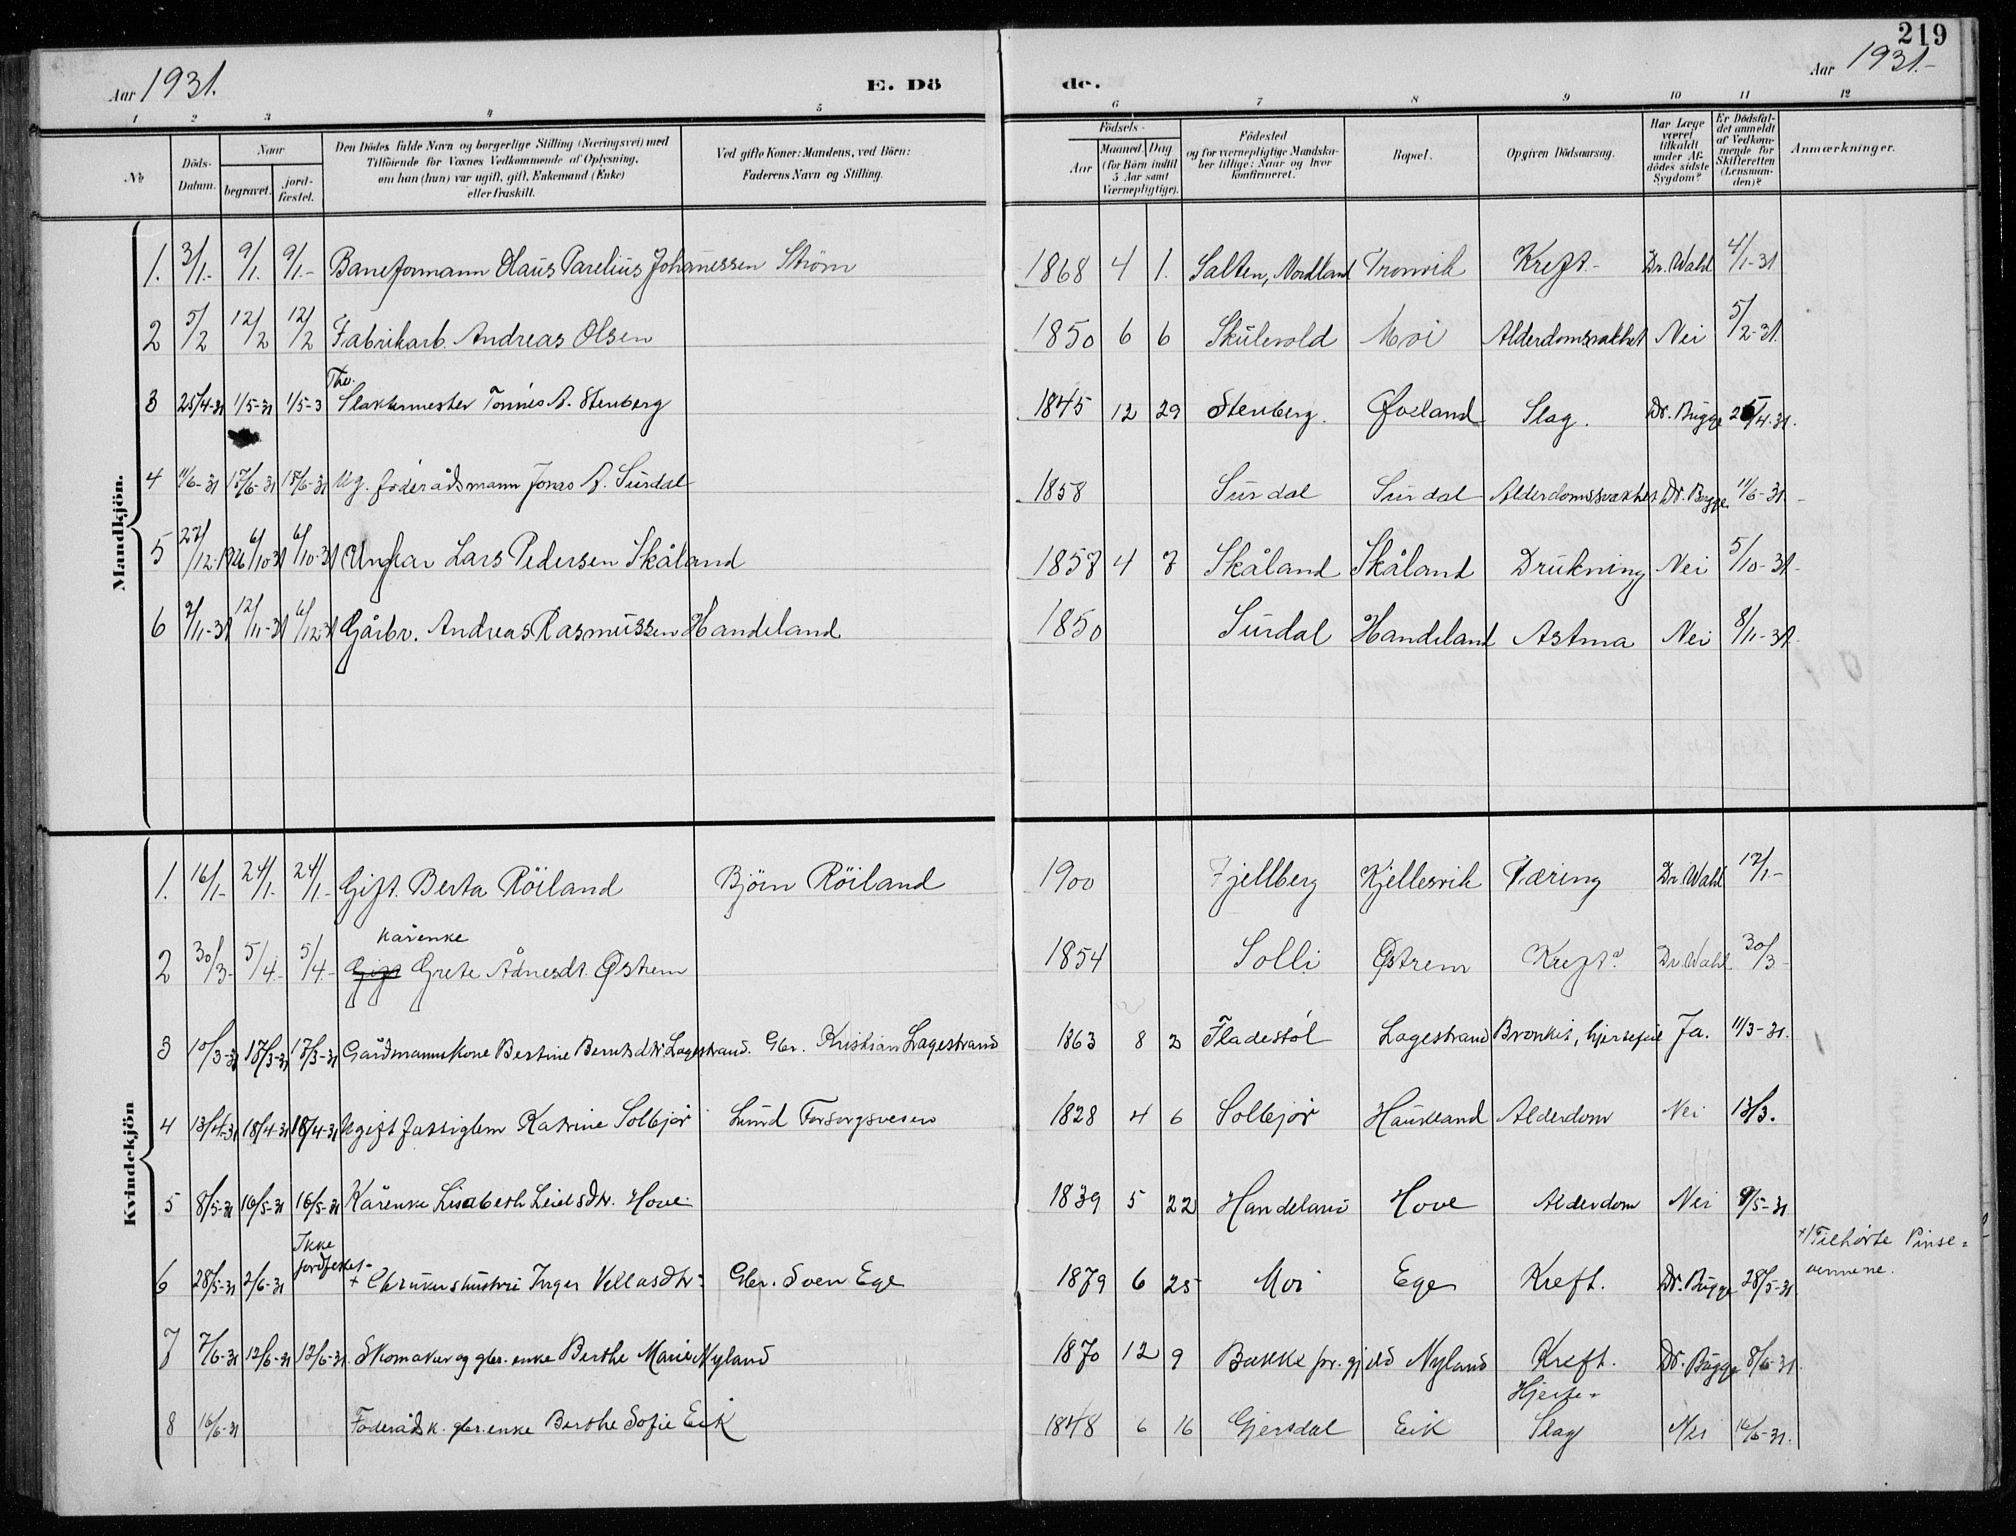 219
Aar 1931.
E. Dö
de.
Aar 1931.-
1 2 3 4 5 6 7 8 9 10 11 12
No
Döds-Datum.
Naar
begravet.
jord-fæstet.
Den Dödes fulde Navn og borgerlige Stilling (Næringsvei) med
Tilföiende for Voxnes Vedkommende af Oplysning,
om han (hun) var ugift, gift, Enkemand (Enke)
eller fraskilt.
Ved gifte Koner: Mandens, ved Börn:
Faderens Navn og Stilling.
Födsels-
Aar
Maaned. Dag.
(for Börn indtil
5 Aar samt
Værnepligtige).
Födested
og for værnepligtige Mandska-
ber tillige: Naar og hvor
konfirmeret.
Bopæl.
Opgiven Dödsaarsag.
Har Læge
været
tilkaldt
under Af-
dödes sidste
Sygdom?
Er Dödsfal-
det anmeldt
af Vedkom-
mende for
Skifteretten
(Lensman-
den)?
Anmærkninger.
Mandkjön.
1. 3/1.- 9/1. 9/1.- Baneformann Olaus Parelius Johannessen Ström 1868 4 1. Salten, Nordland Tronvik Kreft.- Dr. Wahl 4/1-31
2 5/2 12/2 12/2 Fabrikarb. Andreas Olsen 1850 6 6 Skulevold Moi Alderdomssvakhet Nei 5/2-31.
Thv.
3 25/4-31 1/5-31 1/5-3 Slaktermester Tønnes A. Stenberg 1845 12 29 Stenberg. Øveland Slag. Dr. Bugge 25/4.31.
4 11/6-31 17/6-31 17/6-31 Ug. føderådsmann Jonas A. Surdal 1858 Surdal Surdal Alderdomssvakhet Dr. Bugge 11/6-31.-
5 27/12.1926 6/10 31 6/10-31 Ungkar Lars Pedersen Skåland 1857 4 7 Skåland Skåland Drukning Nei 5/10-31-
6 7/11-31 12/11-31 6/12-31 Gårbr. Andreas Rasmussen Handeland 1850 Surdal Handeland Astma Nei 8/11-31.
Kvindekjön
1. 16/1- 24/1- 24/1- Gift. Berta Röiland Björn Röiland 1900 Fjellberg Kjellesvik Tæring Dr Wahl 17/1-
kårenke
2 30/3- 5/4.- 5/4.- Gift Grete Ådnesdt. Østrem 1854 Solli Østrem Kreft. Dr Wahl 30/3-
3 10/3-31 17/3-31 17/3-31 Gårdmannskone Bertine Berntsdtr Lagestrand. Gbr. Kristian Lagestrand 1863 8 2 Fladestöl Lagestrand Bronkit, hjertefeil Ja. 11/3-31.
4 13/4-31 18/4-31 18/4-31 Ugift fattiglem Katrine Solbjør Lund Forsorgsvesen 1828 4 6 Solbjør Haukland Alderdom Nei 13/3.
5 8/5-31 16/5-31 16/5-31 Kårenke Lisabeth Leidsdtr. Hove 1839 5 22 Handeland Hove Alderdom Nei 9/5-31
Ikke
jordfestet-
6 28/5-31 2/6-31 + Gbrukerhustru Inger Vellasdtr. Gbr. Sven Ege 1879 6 25 Moi Ege Kreft. Dr. Bugge 28/5-31 +/ Tilhørte Pinse=
vennene.
7 7/6-31 12/6-31 12/6-31. Skomaker og gbr. enke Berthe Marie Nyland 1870 12 9 Bakke pr. gjeld Nyland Kreft. Dr. Bugge 8/6-31.
Hjerte-
8 16/6-31 Föderådsk. gbr. enke Berthe Sofie Eik 1848 6 16 Gjersdal Eik Slag Nei 16/6-31.